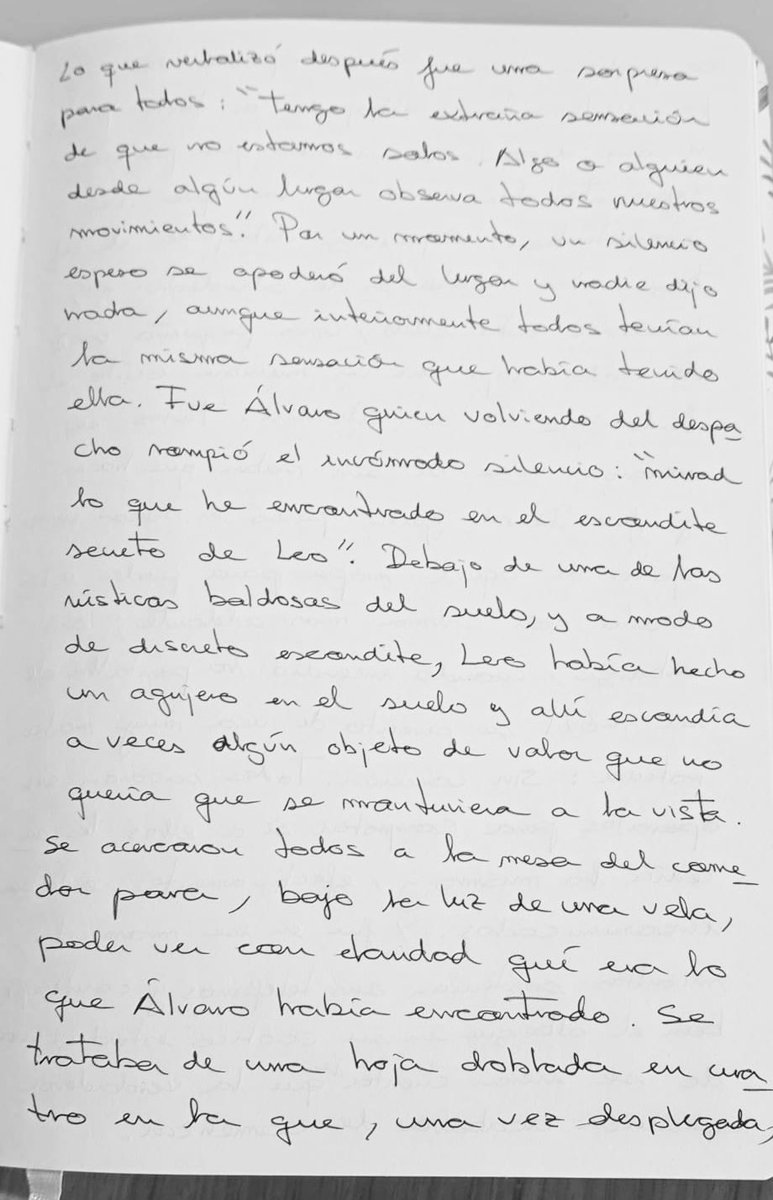 Lo que verbalizó después fue una sorpresa
para todos: "tengo la extraña sensación
de que no estamos solos. Algo o alguien
desde algún lugar observa todos nuestros
movimientos". Por un momento, un silencio
espeso se apoderó del lugar y nadie dijo
nada, aunque interiormente todos tenían
la misma sensación que había tenido
ella. Fue Álvaro quien volviendo del despa
cho rompió el incómodo silencio: "mirad
lo que he encontrado en el escondite
secreto de Leo". Debajo de una de las
rústicas baldosas del suelo, y a modo
de discreto escondite, Leo había hecho
un agujero en el suelo y allí escondía
a veces algún objeto de valor que no
quería que se mantuviera a la vista.
Se acercaron todos a la mesa del come
dor para, bajo la luz de una vela,
poder ver con claridad qué era lo
que Álvaro había encontrado. Se
trataba de una hoja doblada en cua
tro en la que, una vez desplegada,